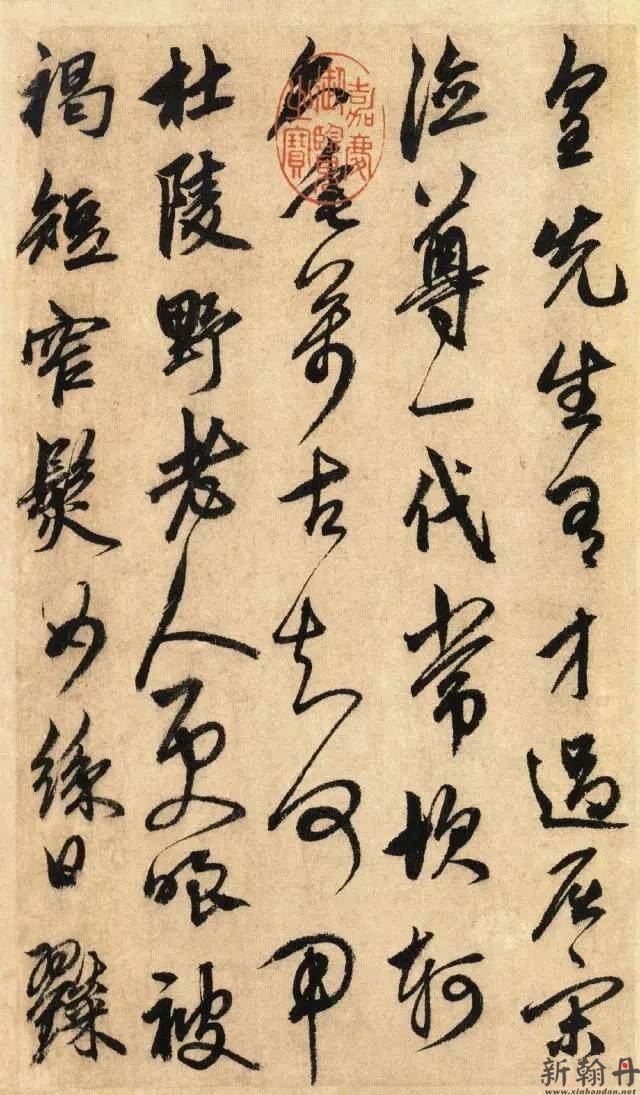 皇先生有才過屈宋
德尊一代常坎軻
名垂萬古知何用
杜陵野老人更嗤被
褐短窄鬢如絲日糴
嘉慶御覽之寶
新翰丹
www.xinhandan.net